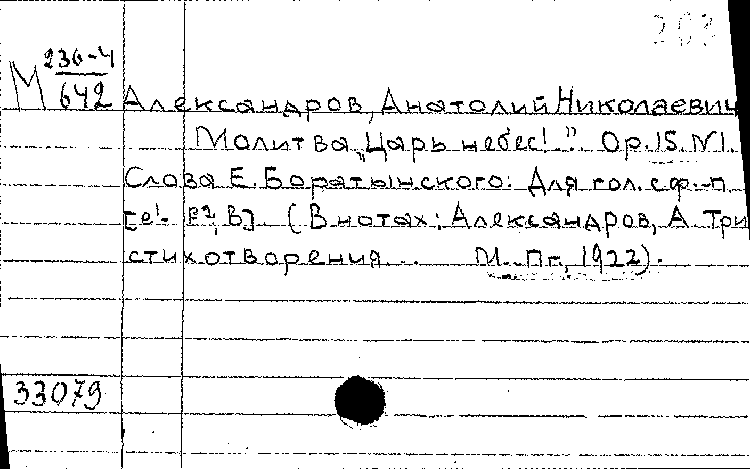 203
М 236-4
642
Александров, Анатолий Николаевич
Молитва „Царь небес!". Ор.15. №1.
Слова Е. Боратынского. Для гол. с ф.-п.
[e¹- g², B]. (В нотах: Александров, А. Три
стихотворения... М.-Пг., 1922).
33079